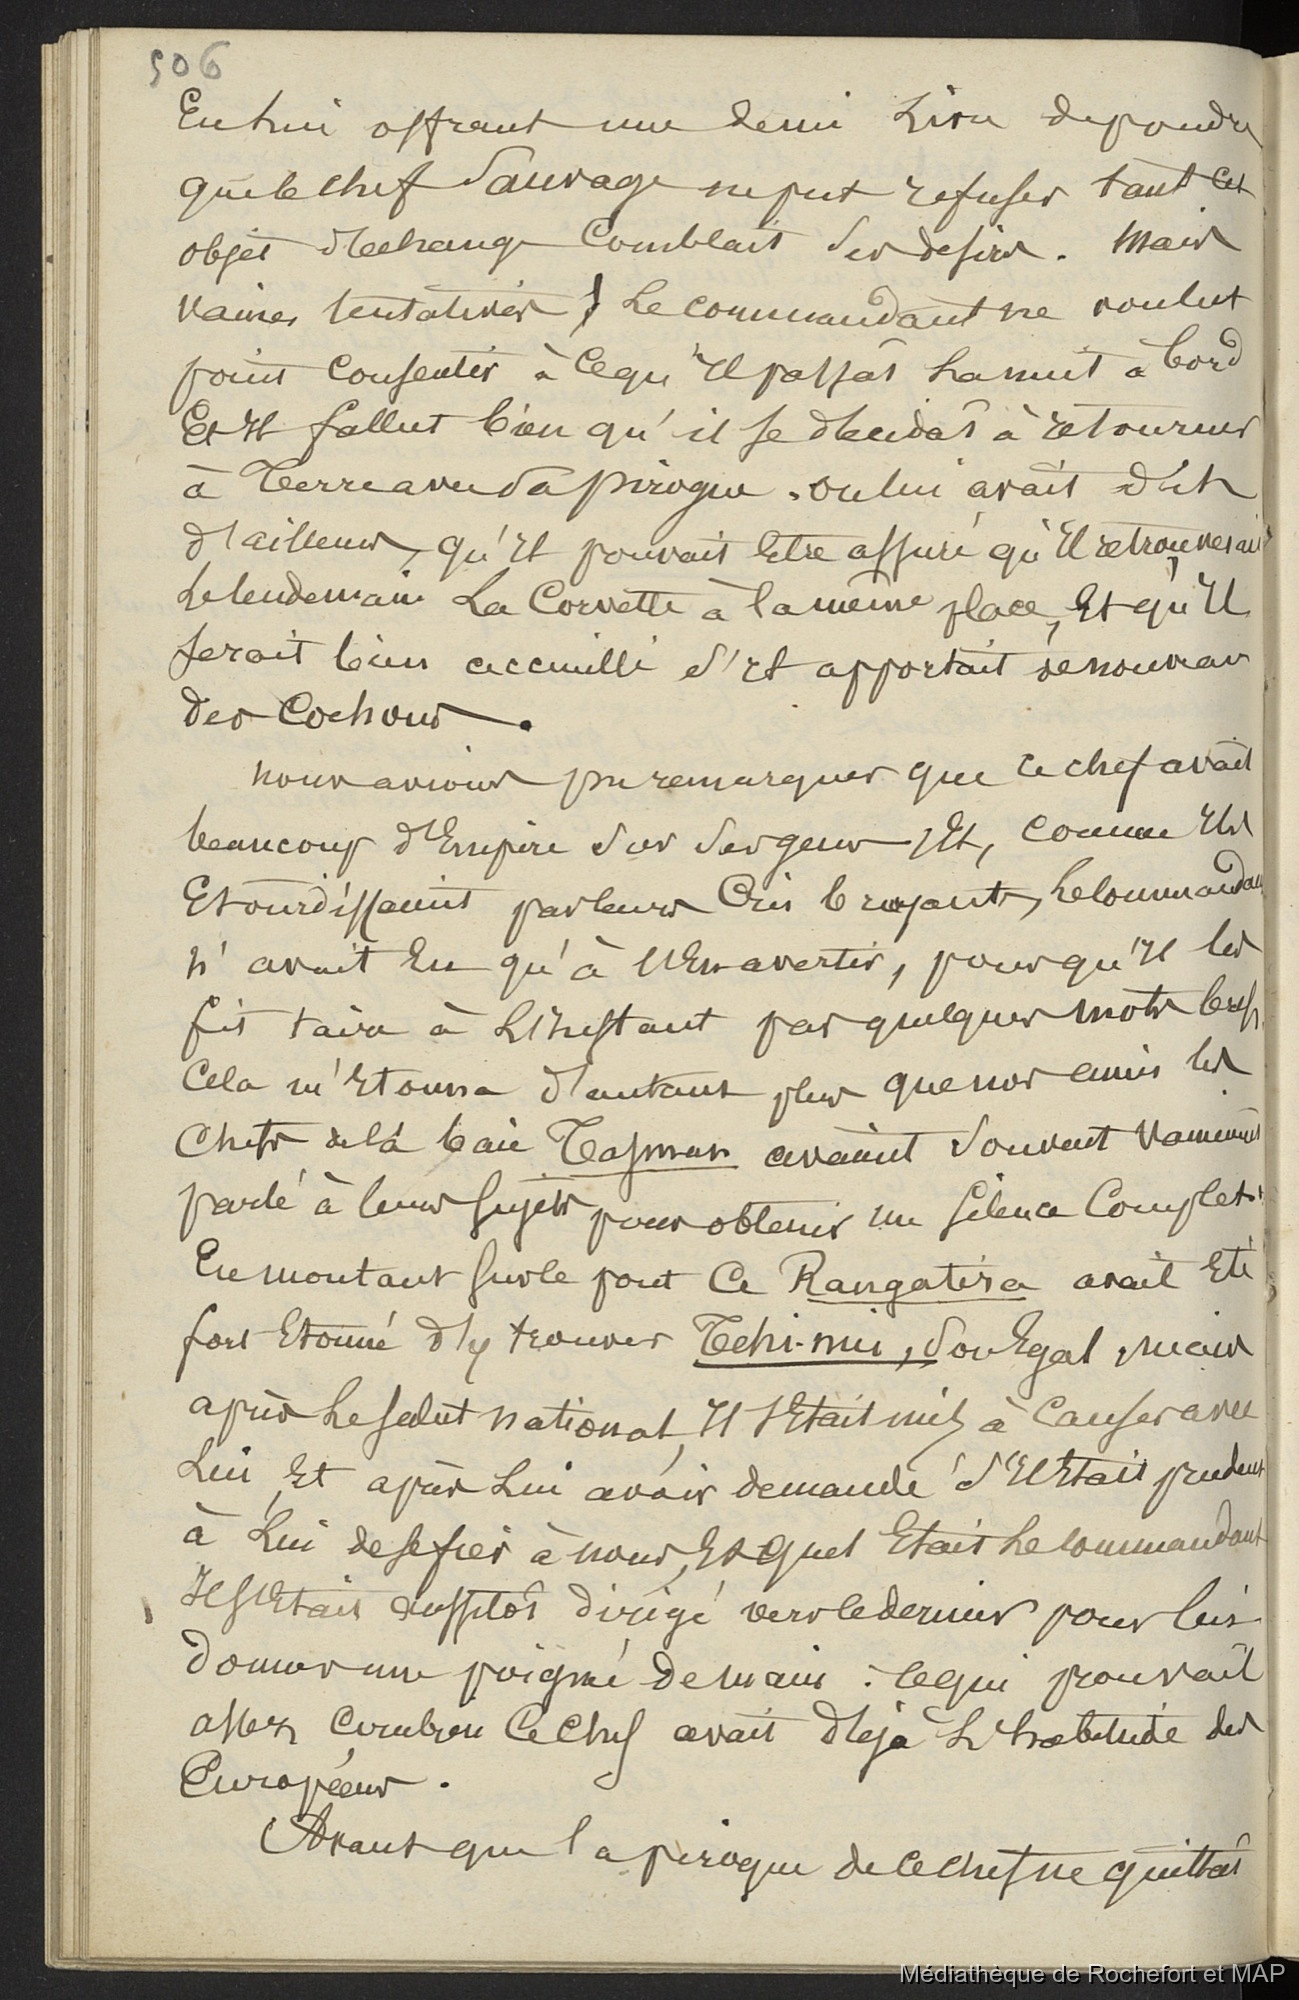 506
En lui offrant une demi Livre de poudre
que le chef Sauvage ne put refuser tant cet
objet d'echange Comblait Ses desirs. Mais
vaines tentatives ! Le commandant ne voulut
point Consentir à Ce qu'Il passât La nuit à bord
Et Il fallut bien qu'il se decidât à retourner
à Terre avec Sa pirogue. on lui avait dit
d'ailleurs, qu'Il pouvait Etre assuré qu'Il retrouverait
Le lendemain La Corvette à la même place, Et qu'Il
serait bien accueilli s'Il apportait de nouveau
des Cochons.
nous avions pu remarquer que ce chef avait
beaucoup d'Empire Sur Ses gens, Et, comme Ils
Etourdissaient par leurs Cris bruyants, Le Commandant
n'avait Eu qu'à l'En avertir, pour qu'Il les
fit taire à L'Instant par quelques mots brefs.
Cela m'Etonna d'autant plus que nos amis les
Chefs de la baie Tasman avaient Souvent Vainement
parlé à leurs Sujets pour obtenir un Silence Complet.
En montant Sur le pont Ce Rangatira avait Eté
fort Etonné d'y trouver Tehi-mi, Son Egal, mais
après Le Salut national, Il s'Etait mis à Causer avec
Lui, Et après Lui avoir demandé s'Il Etait prudent
à Lui de se fier à nous, Et quel Etait Le Commandant
Il s'Etait aussitôt dirigé vers le dernier pour lui
donner une poigné de main : Ce qui prouvait
assez combien Ce Chef avait déjà L'habitude des
Européens.
Avant que la pirogue de Ce Chef ne quittât
Médiathèque de Rochefort et MAP